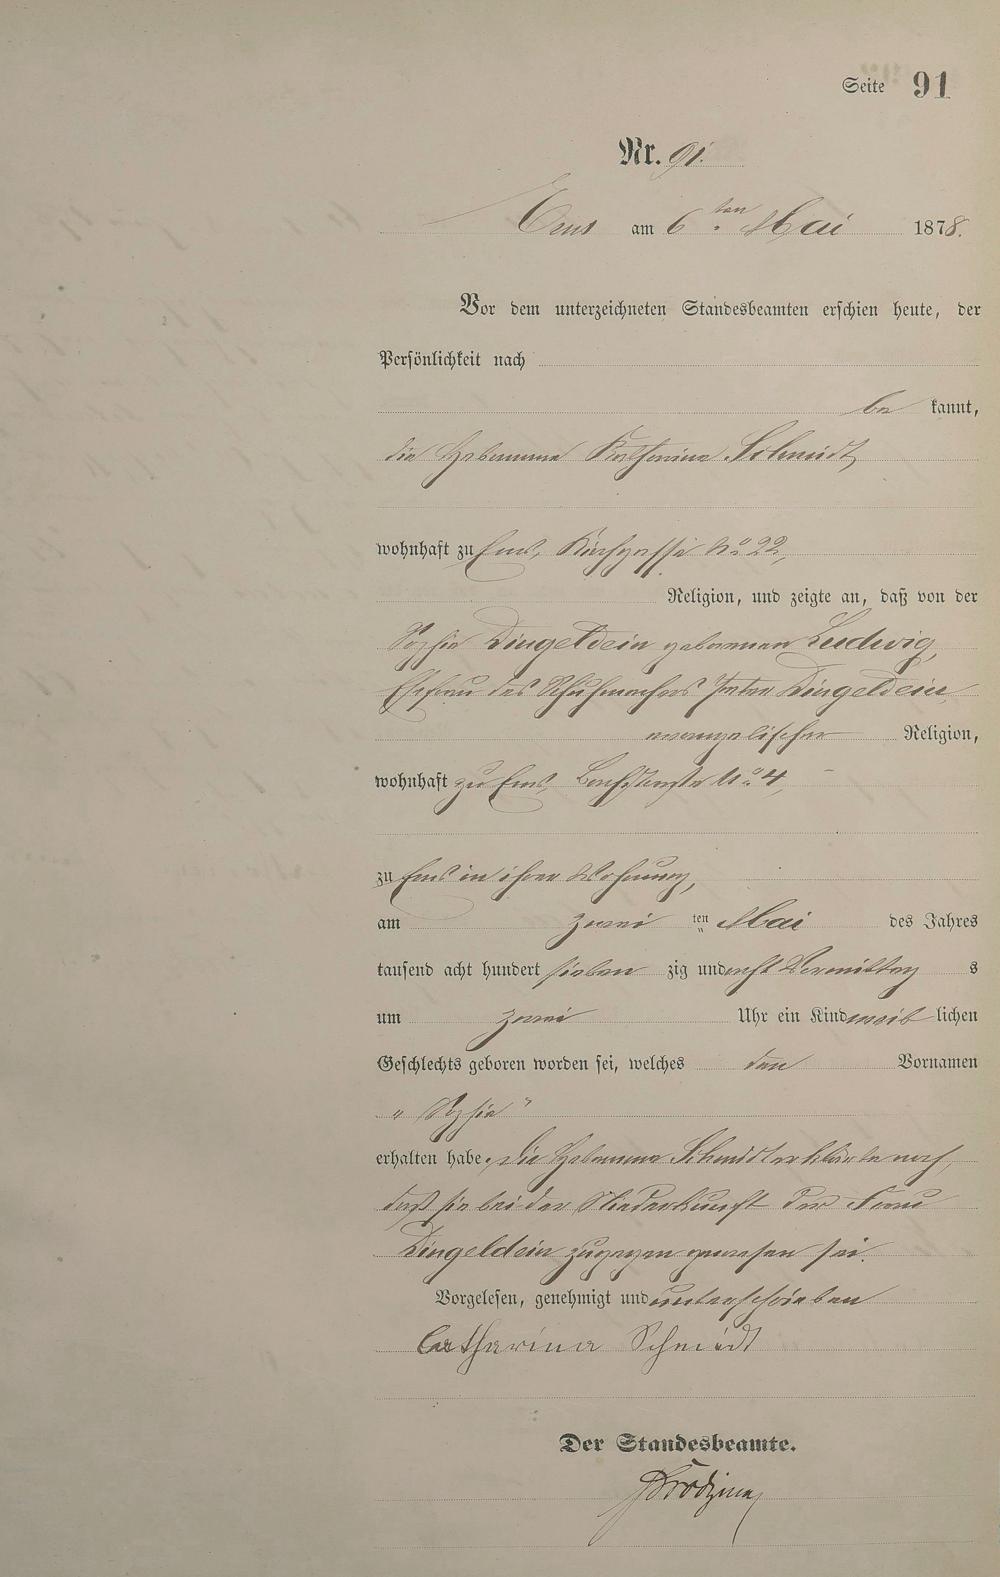 Seite 91
Nr. 91.
Ems am 6ten Mai 1878.
Vor dem unterzeichneten Standesbeamten erschien heute, der
Persönlichkeit nach
be kannt,
die Hebamme Katharina Schmidt,
wohnhaft zu Ems, Kirchgasse No 22,
Religion, und zeigte an, daß von der
Sophie Dingeldein geborenen Ludwig,
Ehefrau des Schuhmachers Peter Dingeldein,
evangelischer Religion,
wohnhaft zu Ems, No 4,
zu Ems in ihrer Wohnung,
am zwei ten Mai des Jahres
tausend acht hundert sieben zig und acht Vormittag s
um zwei Uhr ein Kind weib lichen
Geschlechts geboren worden sei, welches den Vornamen
„Sophie"
erhalten habe. Die Hebamme Schmidt erklärte noch,
daß sie bei der Niederkunft der Frau
Dingeldein zugegen gewesen sei.
Vorgelesen, genehmigt und unterschrieben
Catharina Schmidt
Der Standesbeamte.